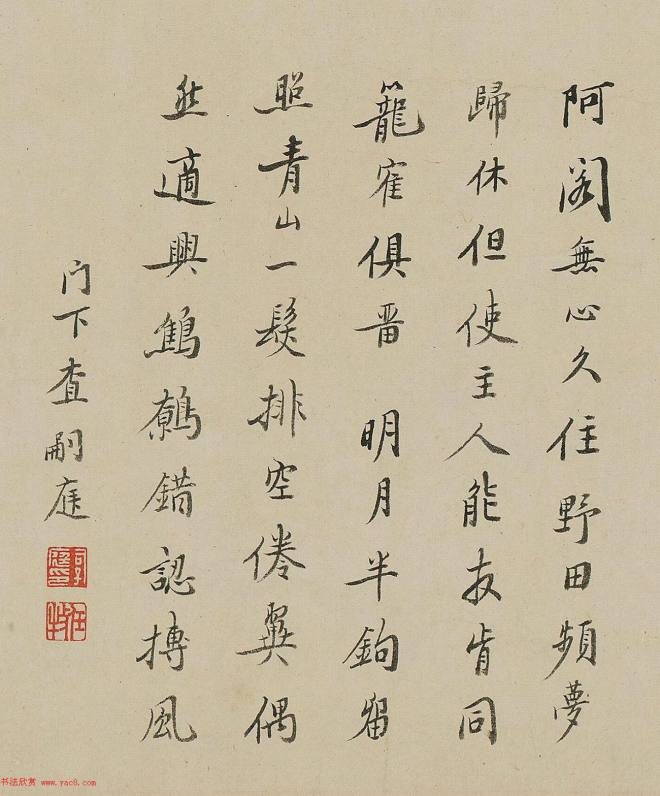 阿阁無心久住野田頻夢
歸休但使主人能友肯同
籠雀俱 明月半鉤留
照青山一髮排空倦翼偶
然適興鷦鷯錯認摶風
门下查嗣庭
书法欣赏 www.yac8.com